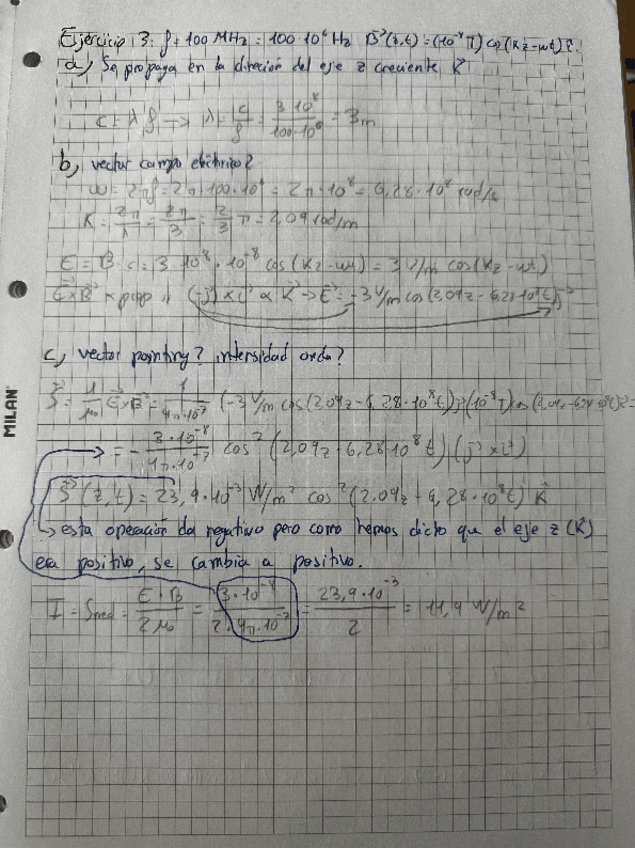 Ejercicio 3: f = 100 MHz = 100·10⁶ Hz B→(z,t) = (10⁻⁸ T) cos(Kz-wt) i→.
a) Se propaga en la direción del eje z creciente K→
c = λ f → λ = c/f = 3·10⁸/100·10⁶ = 3m
b) vector campo eléctrico?
w = 2πf = 2π·100·10⁶ = 2π·10⁸ = 6,28·10⁸ rad/s
K = 2π/λ = 2π/3 = 2/3 π = 2,09 rad/m
E = B·c = 3·10⁸·10⁻⁸ cos(Kz-wt) = 3 V/m cos(Kz-wt)
E→×B→ (-j→)×i→ ∝ K→ → E→ = -3 V/m cos(2,09z - 6,28·10⁸t) j→
c) vector poynting? intensidad onda?
S→ = 1/μ₀ E→×B→ = 1/4π·10⁻⁷ (-3 V/m cos(2,09z - 6,28·10⁸t)) j→ (10⁻⁸T) cos(2,09z - 6,28·10⁸t) i→ =
= - 3·10⁻⁸/4π·10⁻⁷ cos² (2,09z - 6,28·10⁸ t) (j→ × i→)
S→(z,t) = 23,9·10⁻³ W/m² cos²(2,09z - 6,28·10⁸t) K̂
esta operación da negativo pero como hemos dicho que el eje z (K̂)
era positivo, se cambia a positivo.
I = Smed = E·B/2μ₀ = 3·10⁻⁸/2·4π·10⁻⁷ = 23,9·10⁻³/2 = 11,9 W/m²
MILAN